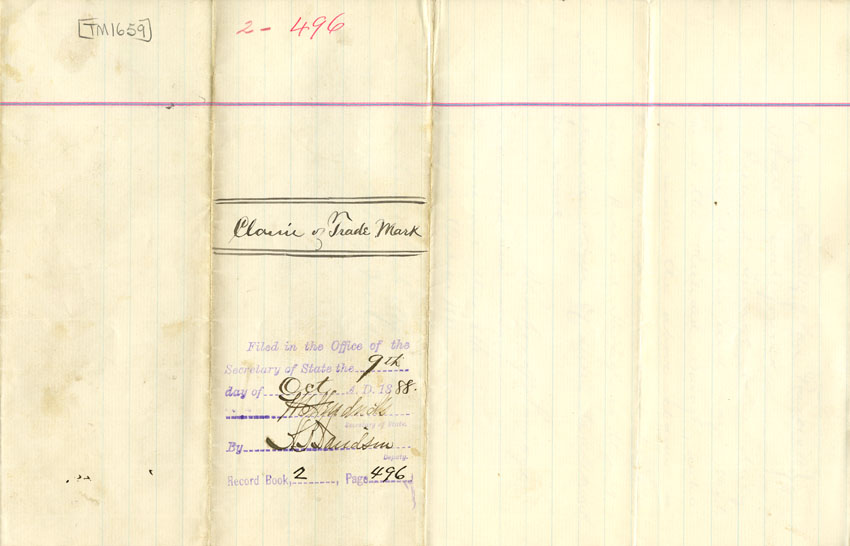 [TM1659]
2 - 496
Claim of Trade Mark
Filed in the Office of the
Secretary of State the 9th
day of Oct A. D. 1888.
W C Hendricks
Secretary of State.
By
Deputy.
Record Book, 2, Page 496